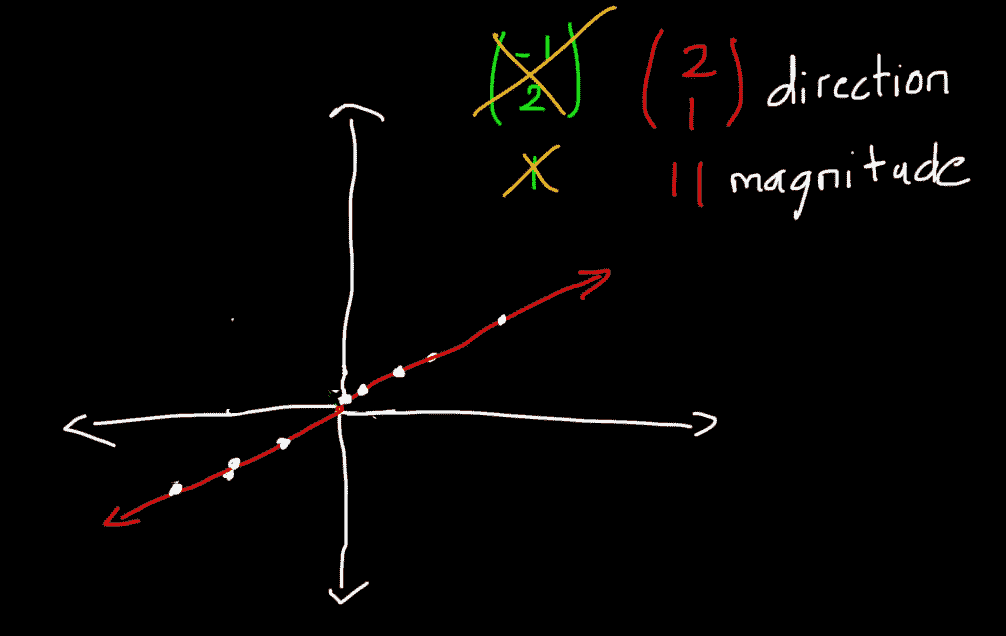 (-1 2) (2 1) direction
1 11 magnitude